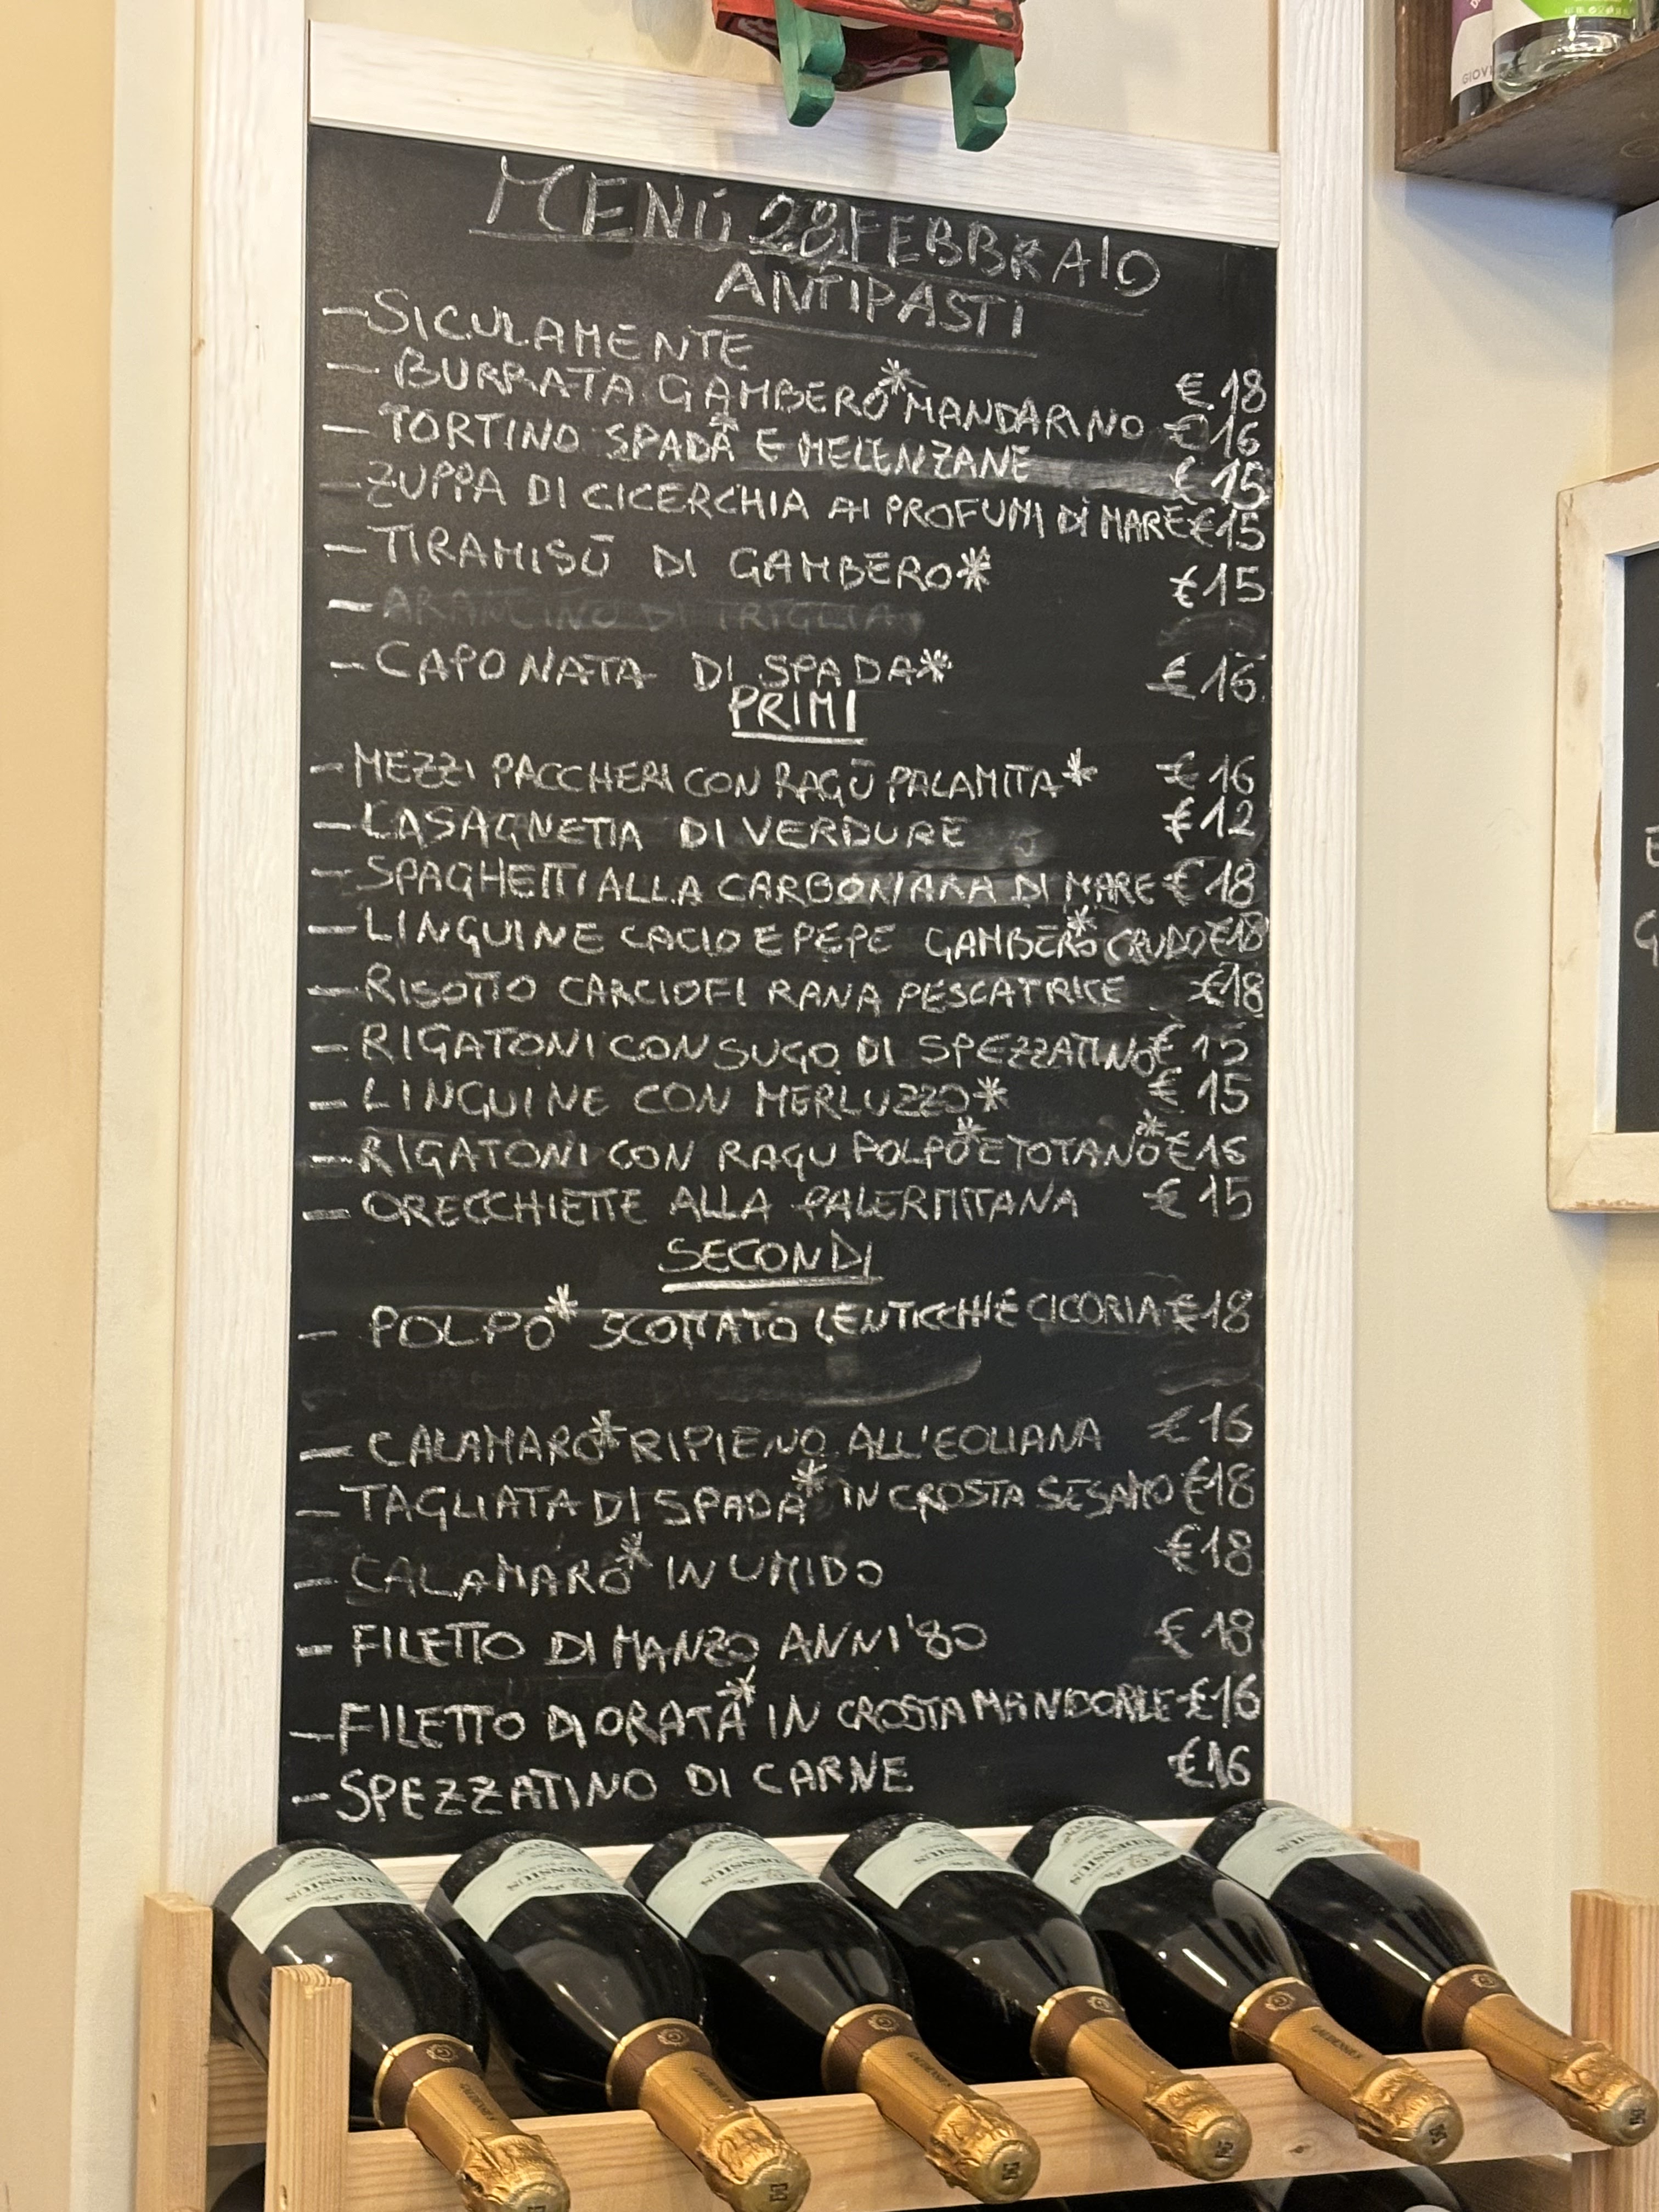 MENÚ 28 FEBBRAIO
ANTIPASTI
– SICULAMENTE €18
– BURRATA GAMBERO* MANDARINO €16
– TORTINO SPADA* E MELENZANE €15
– ZUPPA DI CICERCHIA AI PROFUMI DI MARE €15
– TIRAMISŪ DI GAMBERO* €15
– ARANCINO DI TRIGLIA
– CAPONATA DI SPADA* €16
PRIMI
– MEZZI PACCHERI CON RAGŪ PALAMITA* €16
– LASAGNETTA DI VERDURE €12
– SPAGHETTI ALLA CARBONARA DI MARE €18
– LINGUINE CACIO E PEPE GAMBERO* CRUDO €18
– RISOTTO CARCIOFI RANA PESCATRICE €18
– RIGATONI CON SUGO DI SPEZZATINO €15
– LINGUINE CON MERLUZZO* €15
– RIGATONI CON RAGU POLPO* E TOTANO* €16
– ORECCHIETTE ALLA PALERMITANA €15
SECONDI
– POLPO* SCOTTATO LENTICCHIE CICORIA €18
– CALAMARO* RIPIENO ALL'EOLIANA €16
– TAGLIATA DI SPADA* IN CROSTA SESAMO €18
– CALAMARO* IN UMIDO €18
– FILETTO DI MANZO ANNI '80 €18
– FILETTO DI ORATA* IN CROSTA MANDORLE €16
– SPEZZATINO DI CARNE €16